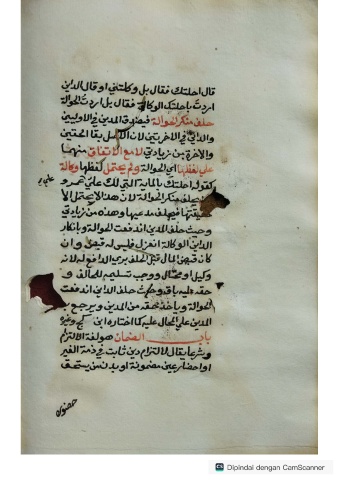 قال احلتك فقال بل وكلتني او قال المدين
اردت باحلتك الوكالة فقال بل اردت الحوالة
حلف منكر الحوالة فيصدق المدين في الاوليين
والدائن في الاخرتين لان الاصل بقا الحقين
والاخرة من زيادتي لا مع الاتفاق منهما
على لفظها اي الحوالة ولم يحتمل لفظها وكالة
كقوله احلتك بالماية التي لك على عمرو
فيحلف منكر الحوالة لان هذا لا يحتمل الا
حقيقتها فيحلف مدعيها وهذه من زيادتي
وحيث حلف المدين اندفعت الحوالة وبانكار
الدائن الوكالة انعزل فليس له قبض وان
كان قبض المال قبل الحلف بري الدافع له لانه
وكيل او محتال ووجب تسليمه للحالف و
حقه عليه باق وحيث حلف الدائن اندفعت
الحوالة وياخذ حقه من المدين ويرجع
المدين على المحال عليه كما اختاره ابن كج وغيره
باب الضمان هو لغة الالتزام
وشرعا يقال لالتزام دين ثابت في ذمة الغير
او احضار عين مضمونة او بدن من يستحق
حضوره
Dipindai dengan CamScanner